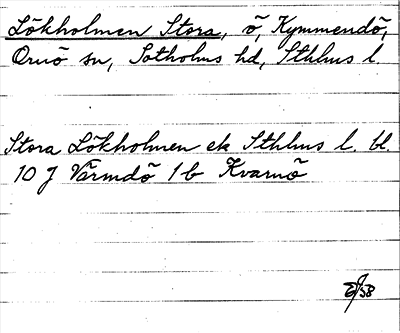 Lökholmen Stora, ö, Kymmendö,
Ornö sn, Sotholms hd, Sthlms l.
Stora Lökholmen ek Sthlms l. bl.
10 J Värmdö 1b Kvarnö
58